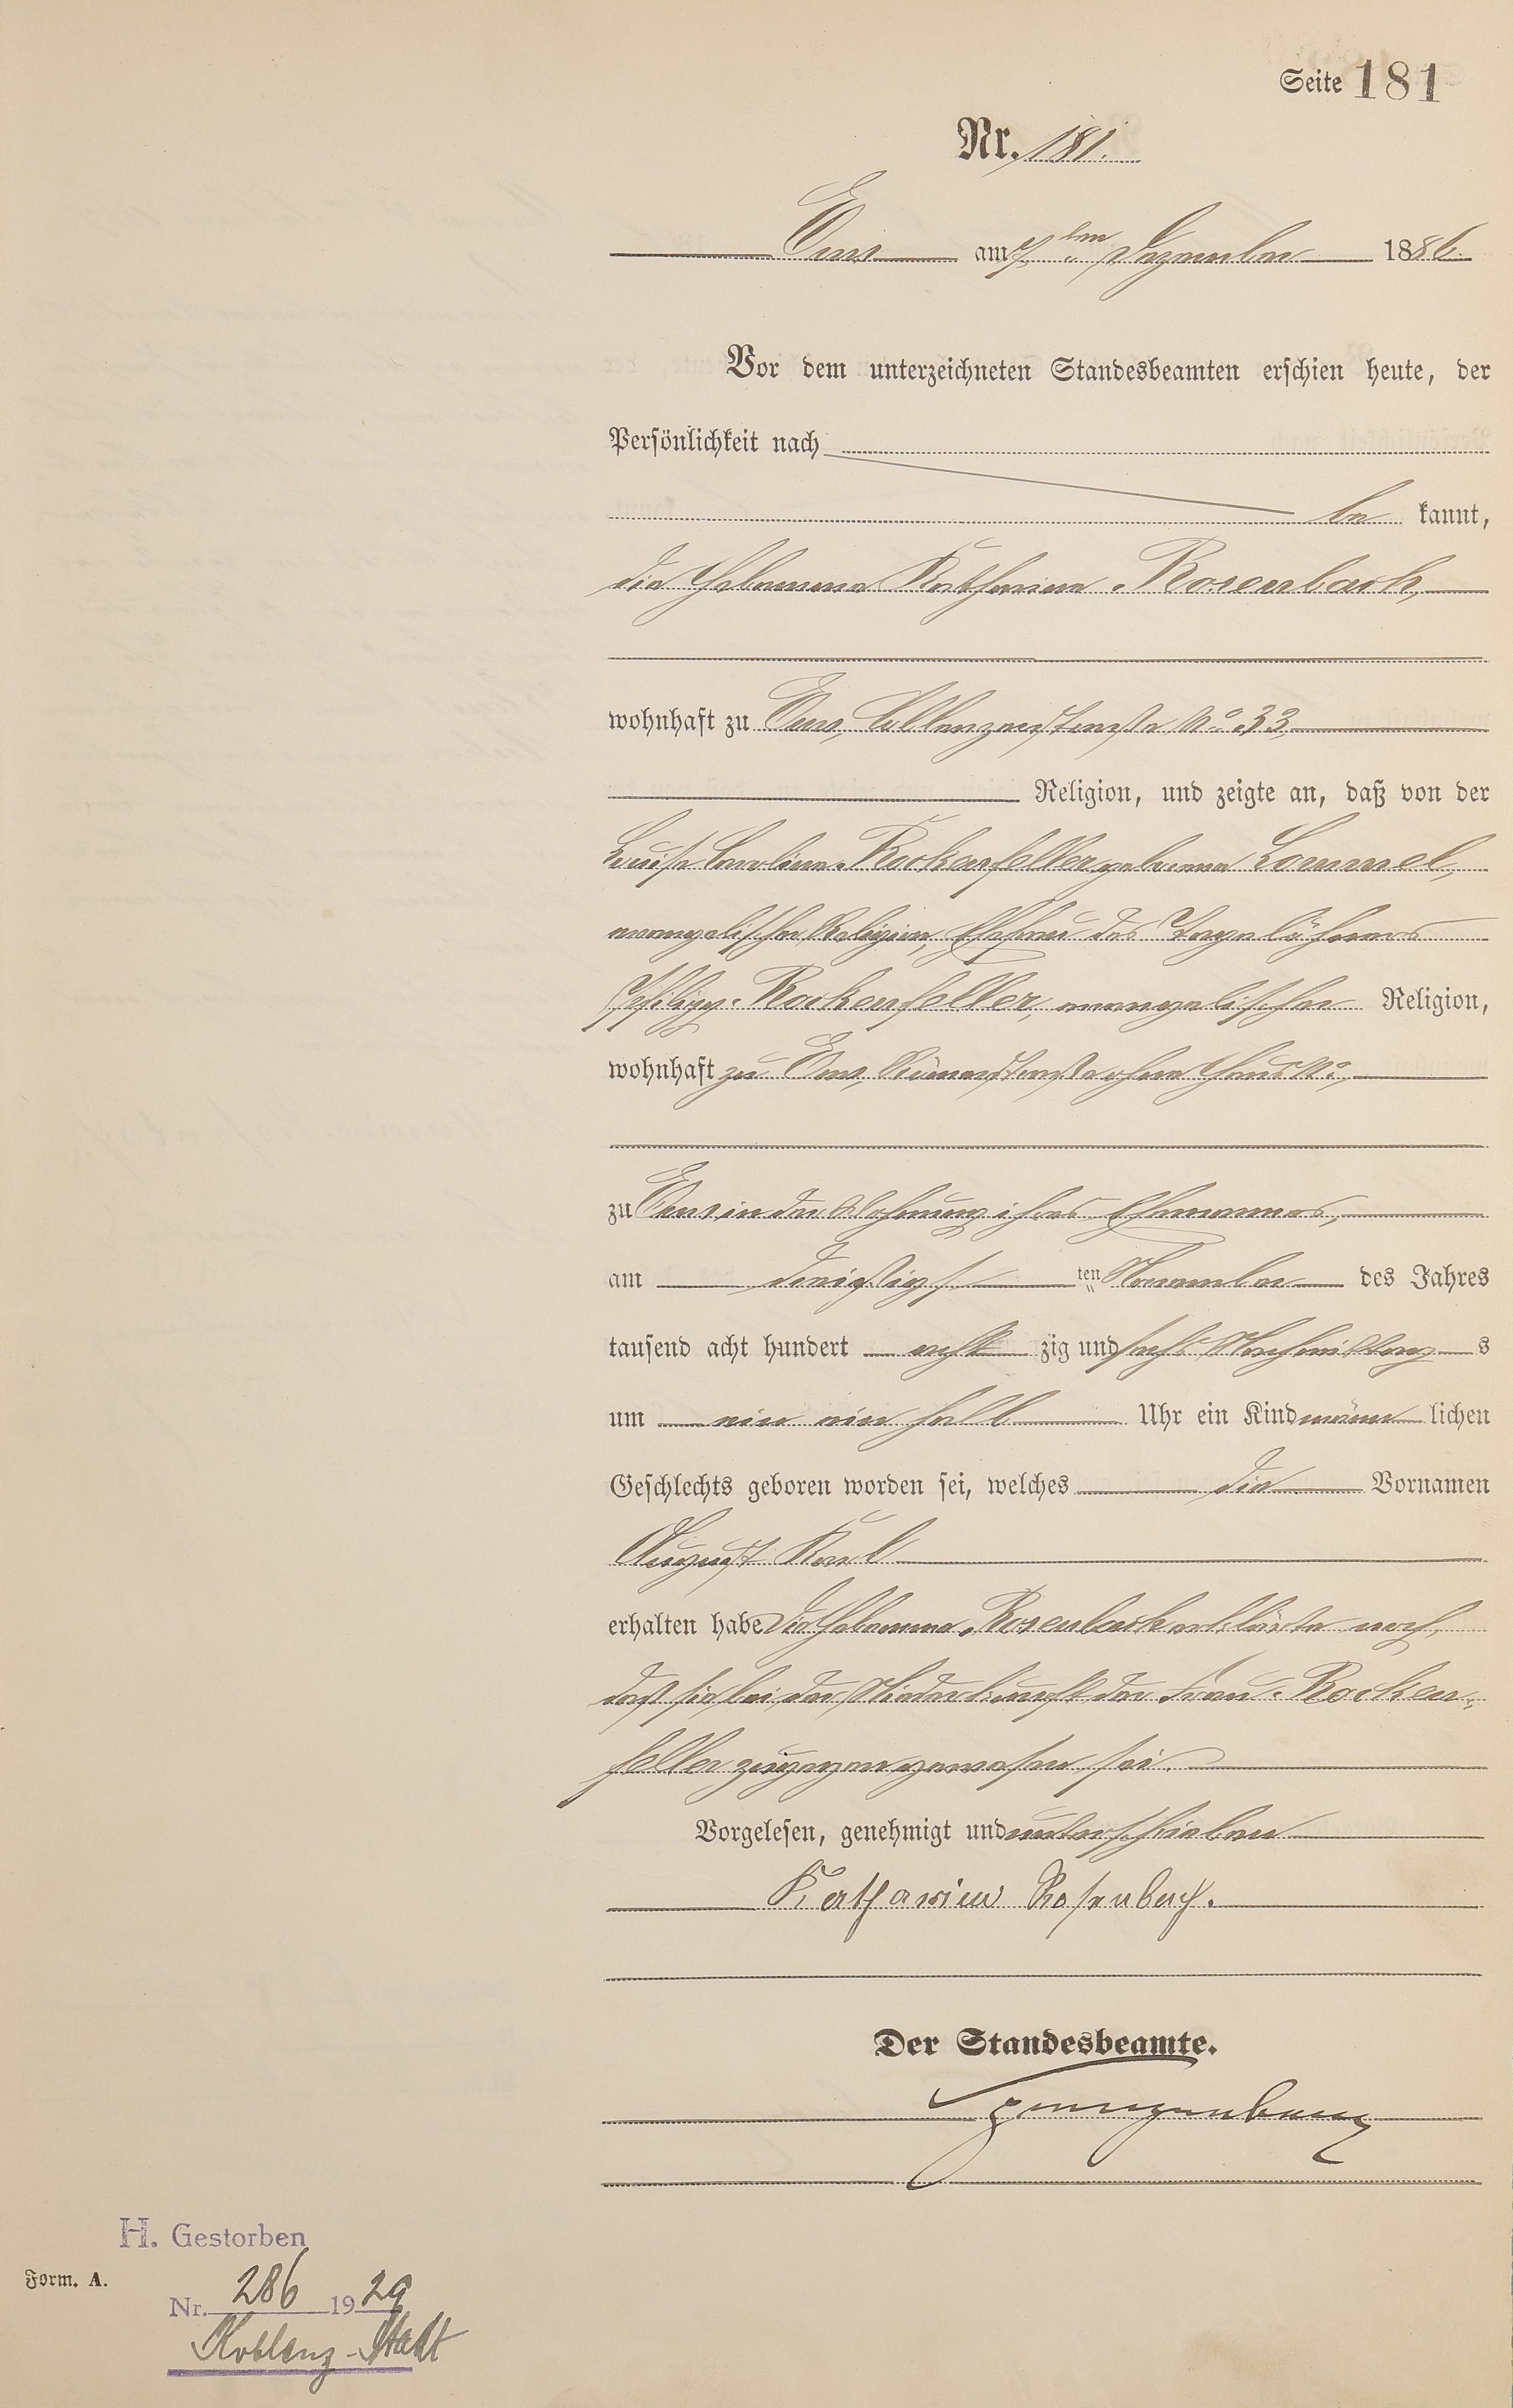 Seite 181
Nr. 181.
Ems am 7ten Dezember 1886.
Vor dem unterzeichneten Standesbeamten erschien heute, der
Persönlichkeit nach
be kannt,
die Hebamme Katharina Rosenbach,
wohnhaft zu Ems, Coblenzerstraße No 33,
Religion, und zeigte an, daß von der
Louise Caroline Rockenfeller geborene Lommel,
evangelischer Religion, Ehefrau des Tagelöhners
Philipp Rockenfeller, evangelischer Religion,
wohnhaft zu Ems, ohne Haus No,
zu Ems in der Wohnung ihres Ehemannes,
am dreißigsten November des Jahres
tausend acht hundert acht zig und sechs Nachmittags
um ein ein halb Uhr ein Kind männ lichen
Geschlechts geboren worden sei, welches die Vornamen
August Karl
erhalten habe Die Hebamme Rosenbach erklärte noch,
daß sie bei der Niederkunft der Frau Rocken-
feller zugegen gewesen sei.
Vorgelesen, genehmigt und unterschrieben
Katharina Rosenbach.
Der Standesbeamte.
H. Gestorben
Form. A.
Nr. 286 1929
Koblenz-Stadt